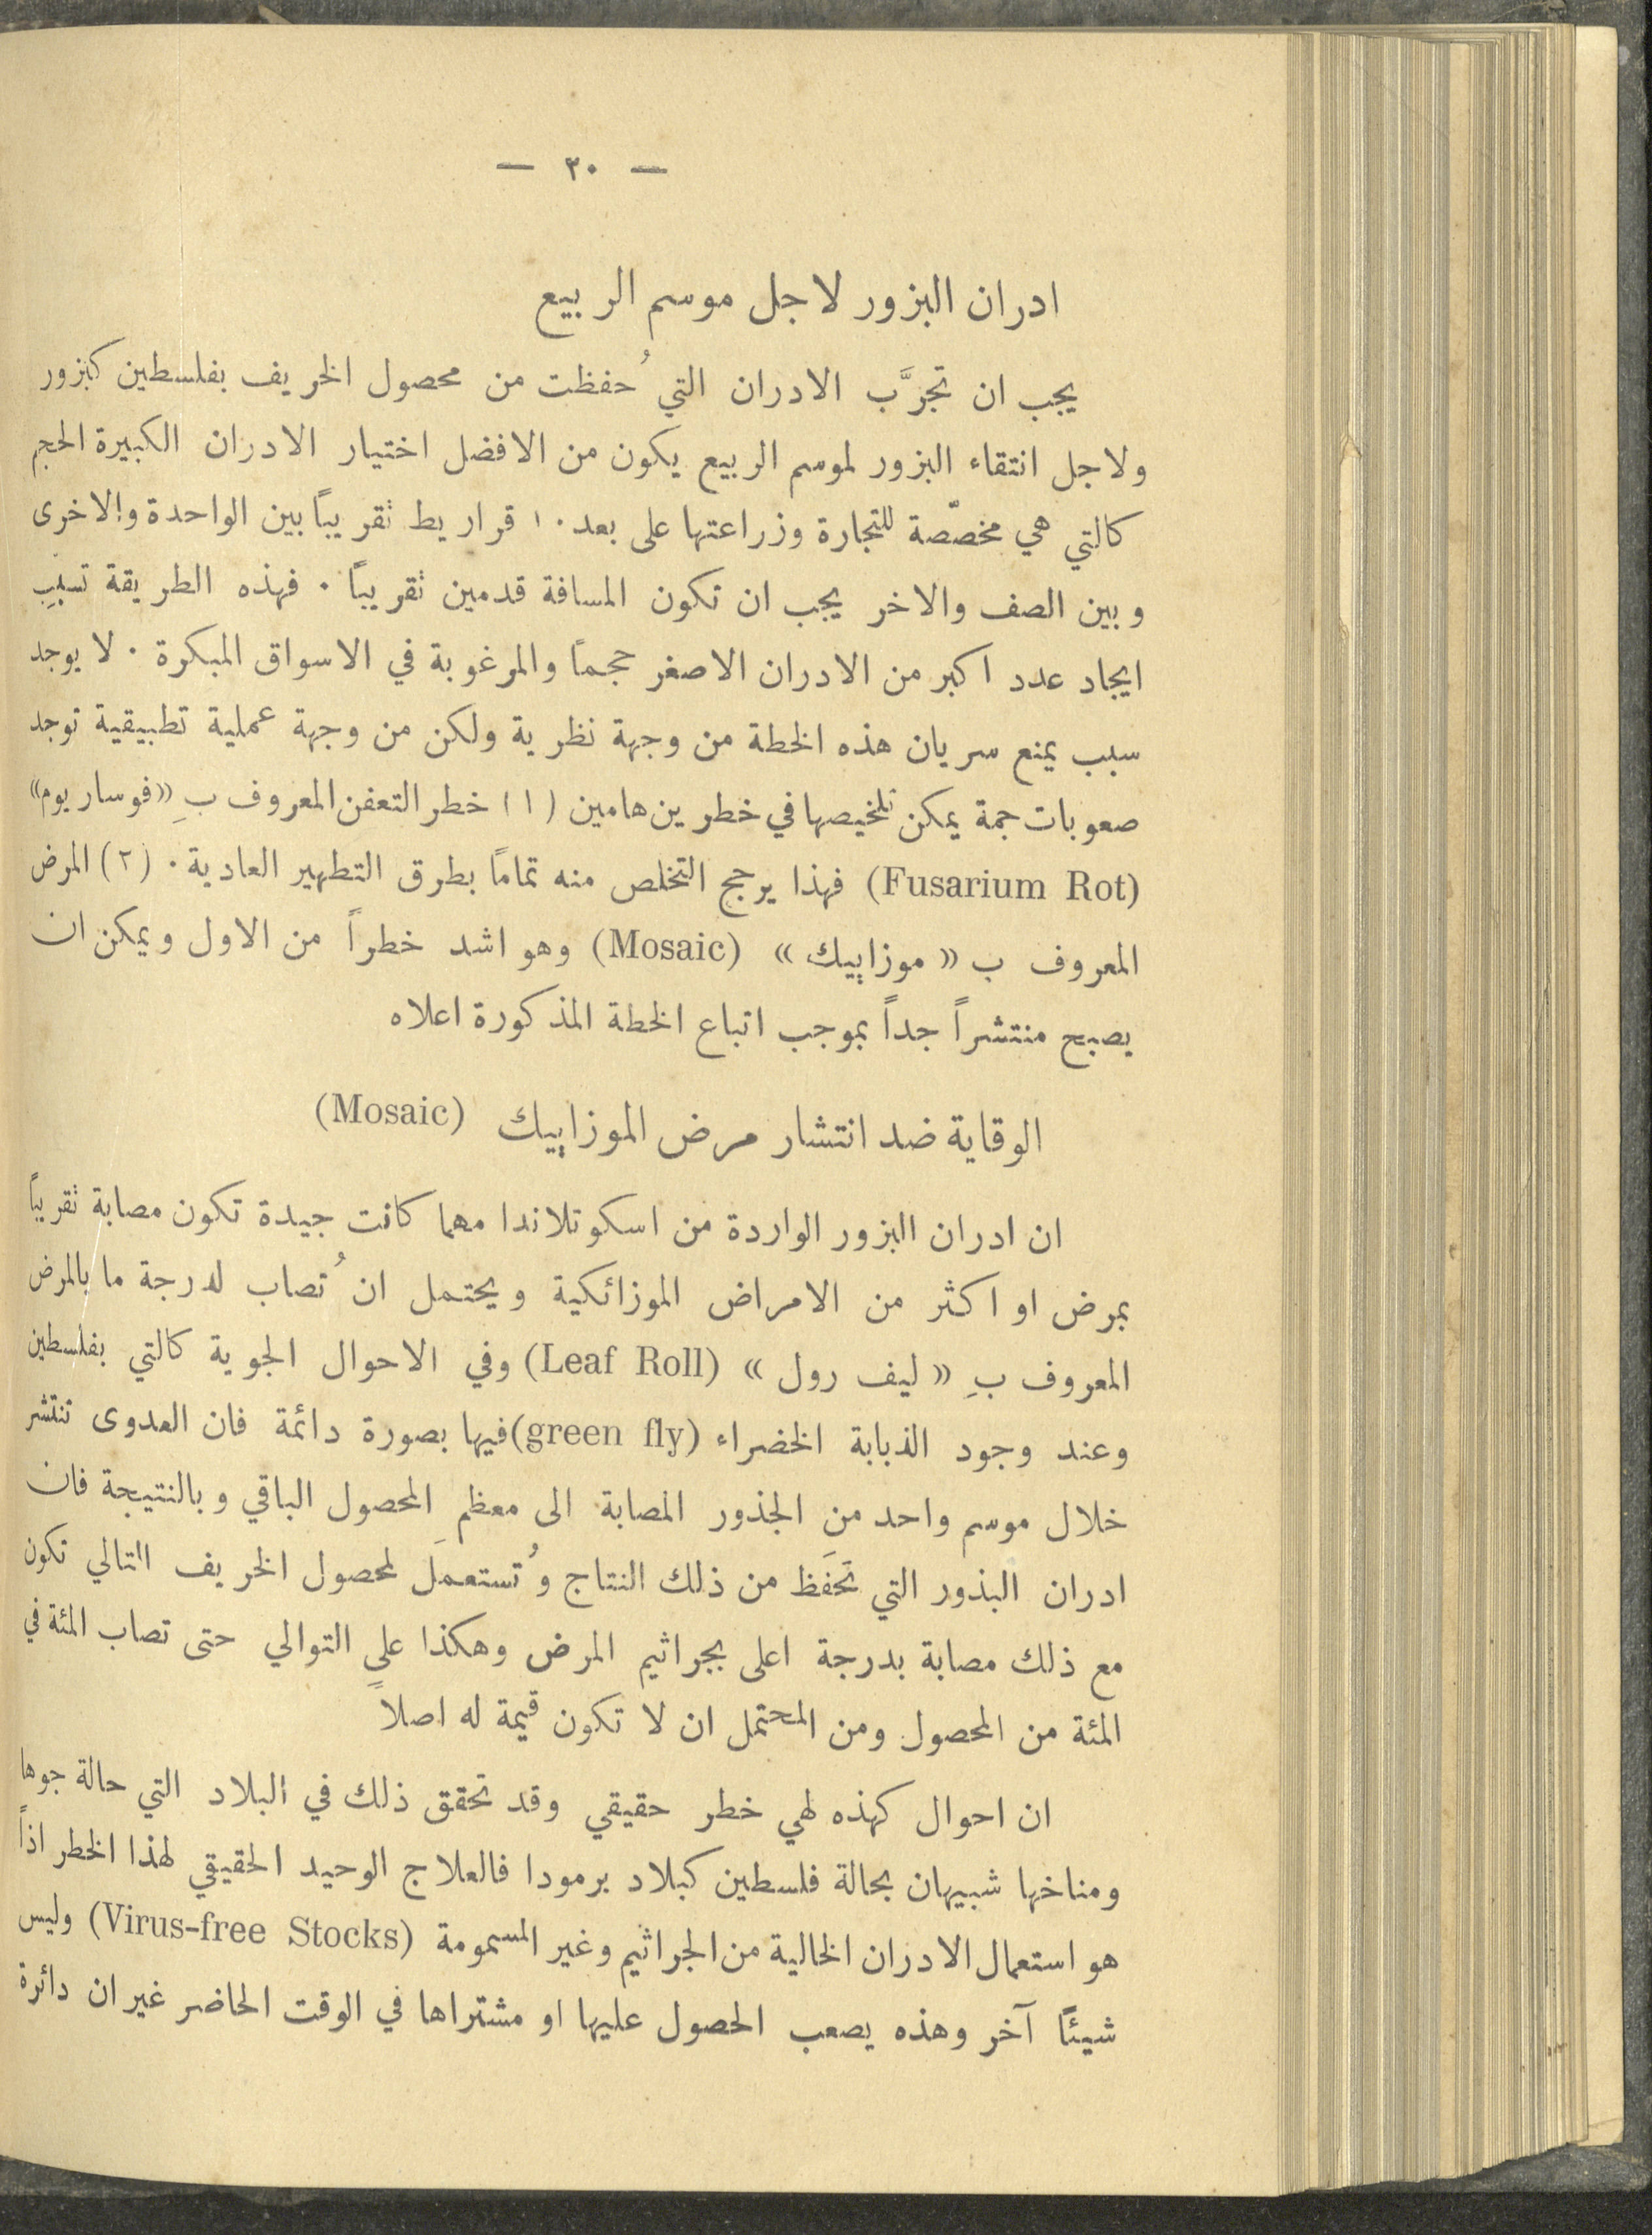 — ٢٠ —
ادران البزور لاجل موسم الربيع
يجب ان تجرَّب الادران التي حُفظت من محصول الخريف بفلسطين كبزور
ولاجل انتقاء البزور لموسم الربيع يكون من الافضل اختيار الادران الكبيرة الحجم
كالتي هي مخصّصة للتجارة وزراعتها على بعد ١٠ قراريط تقريباً بين الواحدة والاخرى
وبين الصف والاخر يجب ان تكون المسافة قدمين تقريباً . فهذه الطريقة تسبب
ايجاد عدد اكبر من الادران الاصغر حجماً والمرغوبة في الاسواق المبكرة . لا يوجد
سبب يمنع سريان هذه الخطة من وجهة نظرية ولكن من وجهة عملية تطبيقية توجد
صعوبات جمة يمكن تلخيصها في خطرين هامين (١) خطر التعفن المعروف بِ «فوساريوم»
(Fusarium Rot) فهذا يرجح التخلص منه تماماً بطرق التطهير العادية . (٢) المرض
المعروف ب « موزاييك » (Mosaic) وهو اشد خطراً من الاول ويمكن ان
يصبح منتشراً جداً بموجب اتباع الخطة المذكورة اعلاه
الوقاية ضد انتشار مرض الموزاييك (Mosaic)
ان ادران البزور الواردة من اسكوتلاندا مهما كانت جيدة تكون مصابة تقريباً
بمرض او اكثر من الامراض الموزائكية ويحتمل ان تُصاب لدرجة ما بالمرض
المعروف بِ « ليف رول » (Leaf Roll) وفي الاحوال الجوية كالتي بفلسطين
وعند وجود الذبابة الخضراء (green fly) فيها بصورة دائمة فان العدوى تنتشر
خلال موسم واحد من الجذور المصابة الى معظم المحصول الباقي وبالنتيجة فان
ادران البذور التي تحَفَظ من ذلك النتاج وتُستعمل لمحصول الخريف التالي تكون
مع ذلك مصابة بدرجة اعلى بجراثيم المرض وهكذا على التوالي حتى تصاب المئة في
المئة من المحصول ومن المحتمل ان لا تكون قيمة له اصلاً
ان احوال كهذه لهي خطر حقيقي وقد تحقق ذلك في البلاد التي حالة جوها
ومناخها شبيهان بحالة فلسطين كبلاد برمودا فالعلاج الوحيد الحقيقي لهذا الخطر اذاً
هو استعمال الادران الخالية من الجراثيم وغير المسمومة (Virus-free Stocks) وليس
شيئاً آخر وهذه يصعب الحصول عليها او مشتراها في الوقت الحاضر غير ان دائرة